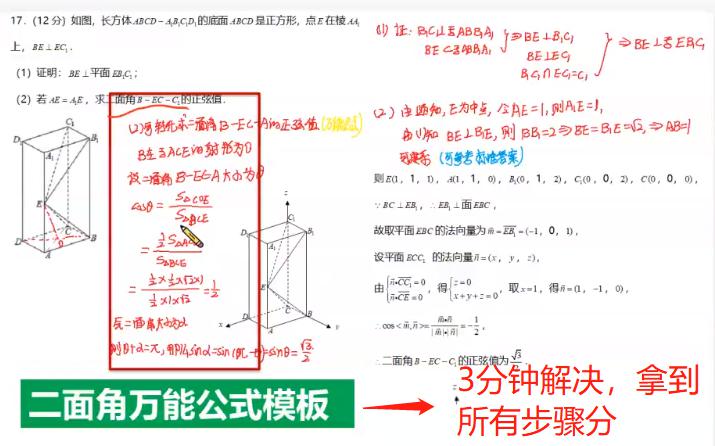 17. (12分) 如图，长方体ABCD－A₁B₁C₁D₁的底面ABCD是正方形，点E在棱AA₁
上，BE⊥EC₁.
(1) 证明：BE⊥平面EB₁C₁；
(2) 若AE＝A₁E，求二面角B－EC－C₁的正弦值.
(2)
二面角B－EC－A
正弦值
B在面ACE的射影为O
设二面角B－EC－A大小为θ
cosθ＝S△COE/S△BCE
＝½S△AC/S△BCE
＝(½×½×√2×1)/(½×1×√2)＝½
元二面角大小为α
则θ+α＝π, sinα＝sin(π－θ)＝sinθ＝√3/2
C₁
D₁
B₁
A₁
E
D
C
O
A
B
z
C₁
D₁
B₁
A₁
E
C
D
x
A
B
y
(1) 证: B₁C₁⊥面ABB₁A₁
BE⊂面ABB₁A₁
⇒BE⊥B₁C₁
BE⊥EC₁
B₁C₁∩EC₁=C₁
⇒BE⊥面EB₁C₁
(2) 由题知, E为中点, 令AE=1, 则A₁E=1,
由(1)知 BE⊥B₁E, 则BB₁=2⇒BE=B₁E=√2, ⇒AB=1
(可参考标准答案)
则E(1，1，1)，A(1，1，0)，B₁(0，1，2)，C₁(0，0，2)，C(0，0，0)，
∵BC⊥EB₁，∴EB₁⊥面EBC，
故取平面EBC的法向量为m＝EB₁＝(−1，0，1)，
设平面ECC₁的法向量n＝(x，y，z)，
由{n•CC₁＝0 n•CE＝0，得{z＝0 x+y+z＝0，取x＝1，得n＝(1，−1，0)，
∴cos<m,n>＝m•n/|m|•|n|＝−1/2，
∴二面角B－EC－C₁的正弦值为√3/2
z
二面角万能公式模板
3分钟解决，拿到
所有步骤分